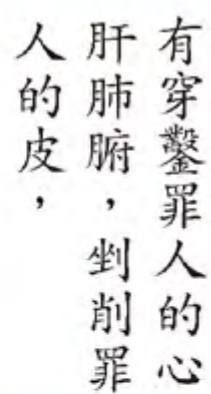 有穿鑿罪人的心
肝肺腑，剉削罪
人的皮，